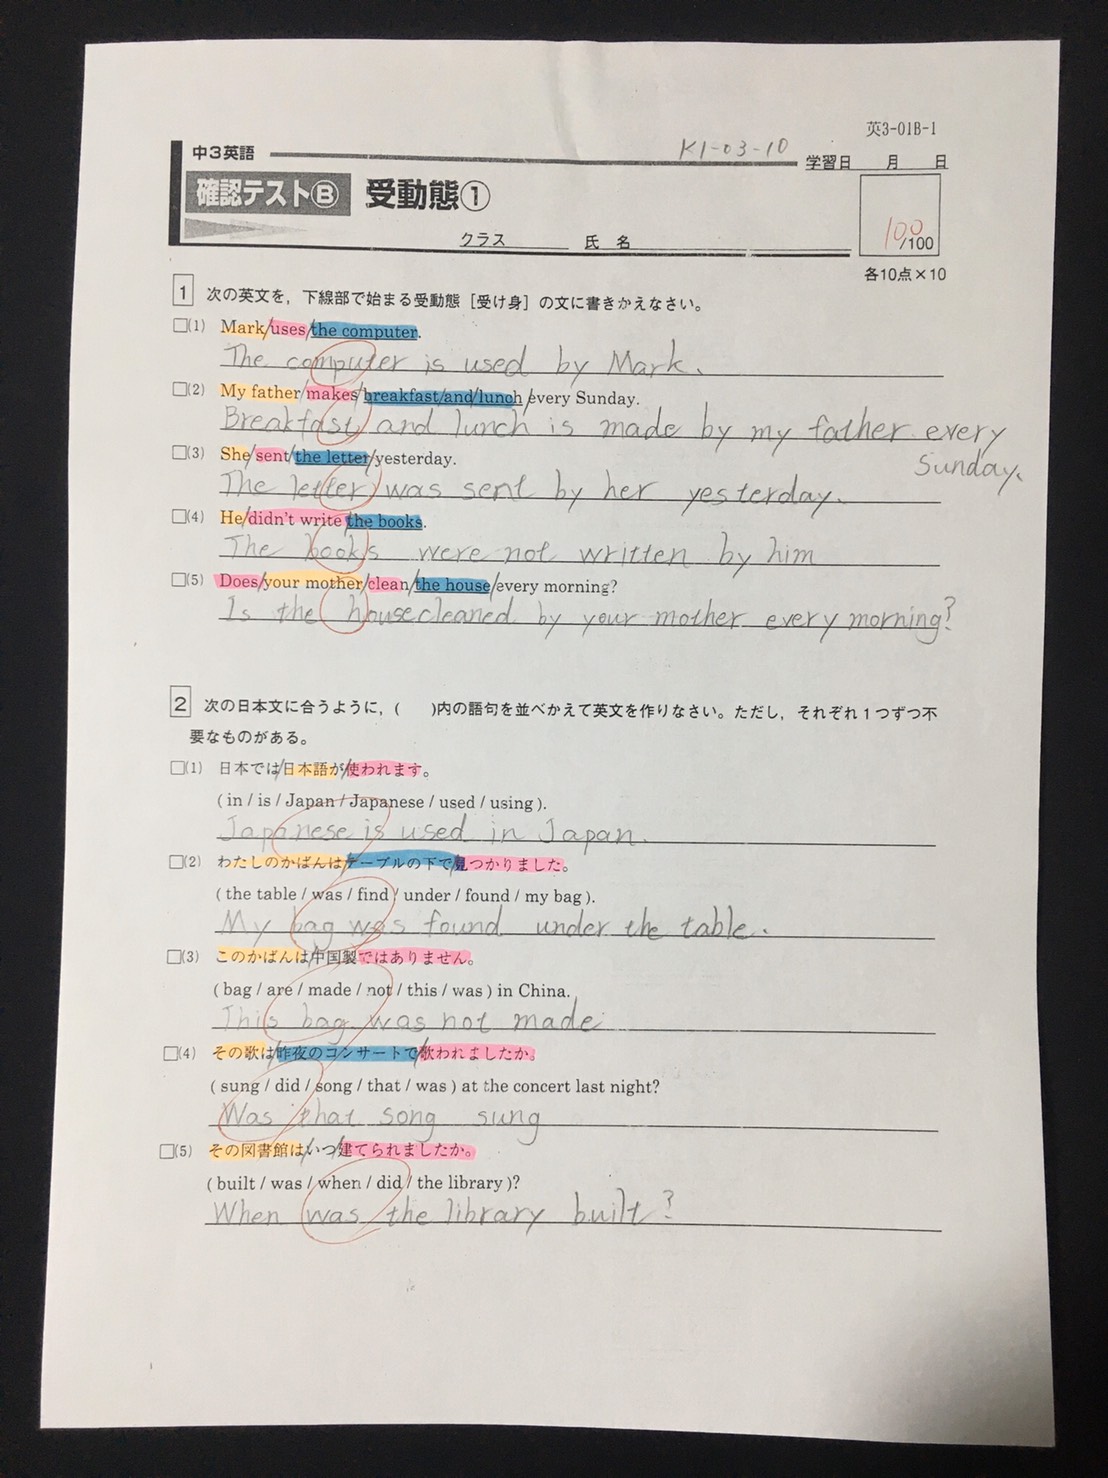 英3-01B-1
中3英語
K1-03-10
学習日 月 日
確認テストⒷ 受動態①
100/100
クラス 氏名
各10点×10
1 次の英文を，下線部で始まる受動態［受け身］の文に書きかえなさい。
□(1) Mark/uses/the computer.
The computer is used by Mark.
□(2) My father/makes/breakfast/and/lunch/every Sunday.
Breakfast and lunch is made by my father every
Sunday.
□(3) She/sent/the letter/yesterday.
The letter was sent by her yesterday.
□(4) He/didn't write/the books.
The books were not written by him
□(5) Does/your mother/clean/the house/every morning?
Is the house cleaned by your mother every morning?
2 次の日本文に合うように，( )内の語句を並べかえて英文を作りなさい。ただし，それぞれ1つずつ不
要なものがある。
□(1) 日本では/日本語が/使われます。
( in / is / Japan / Japanese / used / using ).
Japanese is used in Japan.
□(2) わたしのかばんは/テーブルの下で/見つかりました。
( the table / was / find / under / found / my bag ).
My bag was found under the table.
□(3) このかばんは/中国製ではありません。
( bag / are / made / not / this / was ) in China.
This bag was not made
□(4) その歌は/昨夜のコンサートで/歌われましたか。
( sung / did / song / that / was ) at the concert last night?
Was that song sung
□(5) その図書館は/いつ/建てられましたか。
( built / was / when / did / the library )?
When was the library built?